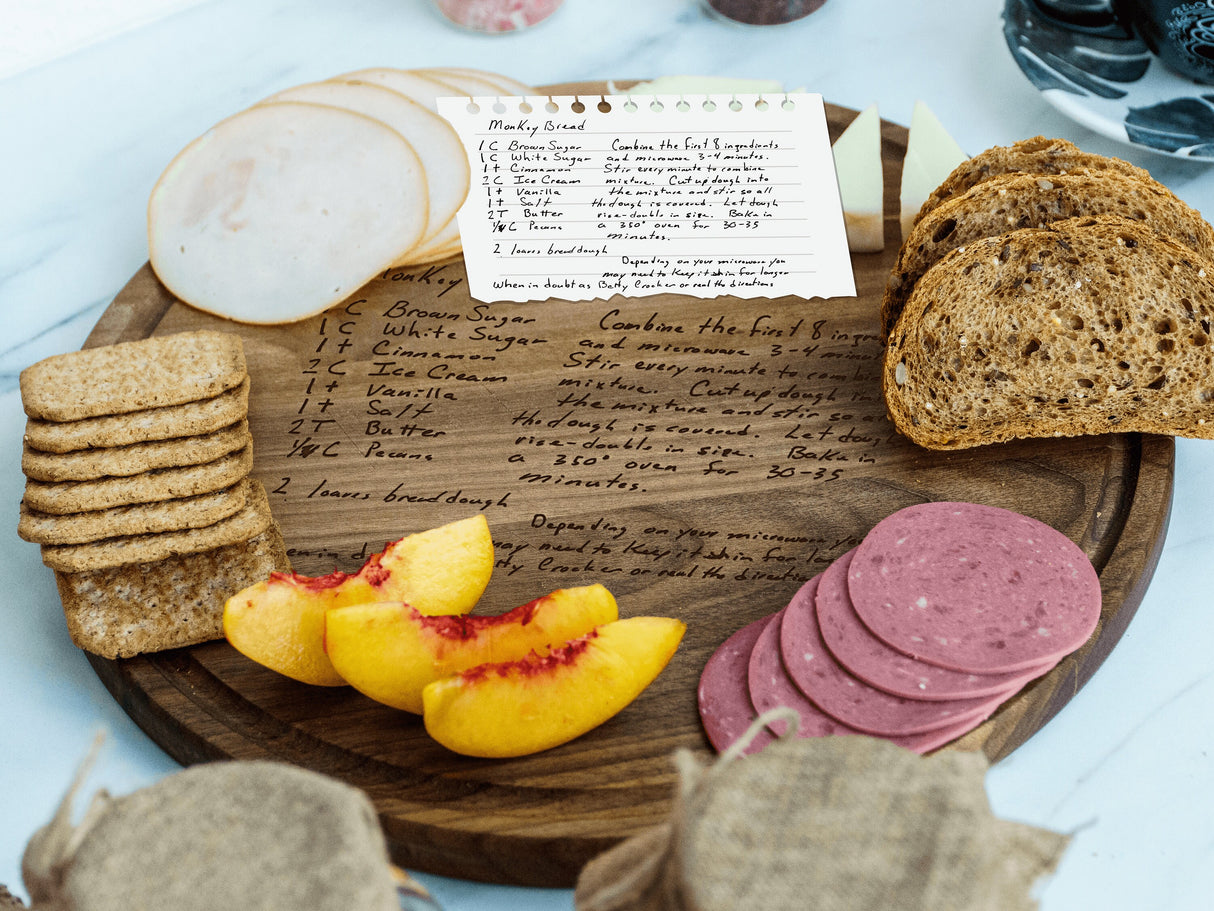 Monkey Bread
1 C Brown Sugar Combine the first 8 ingredients
1 C White Sugar and microwave 3-4 minutes.
1 t Cinnamon Stir every minute to combine
2 C Ice Cream mixture. Cut up dough into
1 t Vanilla the mixture and stir so all
1 t Salt the dough is covered. Let dough
2T Butter rise-double in size. Bake in
1/4 C Pecans a 350° oven for 30-35
minutes.
2 loaves bread dough
Depending on your microwave you
may need to Keep it in for longer
When in doubt as Betty Crocker or read the directions
Monkey
C Brown Sugar Combine the first 8
1 C White Sugar and microwave 3-4
1 t Cinnamon Stir every minute to
2 C Ice Cream mixture. Cut up dough
1 t Vanilla the mixture and stir so
1 t Salt the dough is covered. Let
2T Butter rise-double in size. Bake in
1/4 C Pecans a 350° oven for 30-35
minutes.
2 loaves bread dough
Depending on your microwave
may need to Keep it in for
Crocker or read the